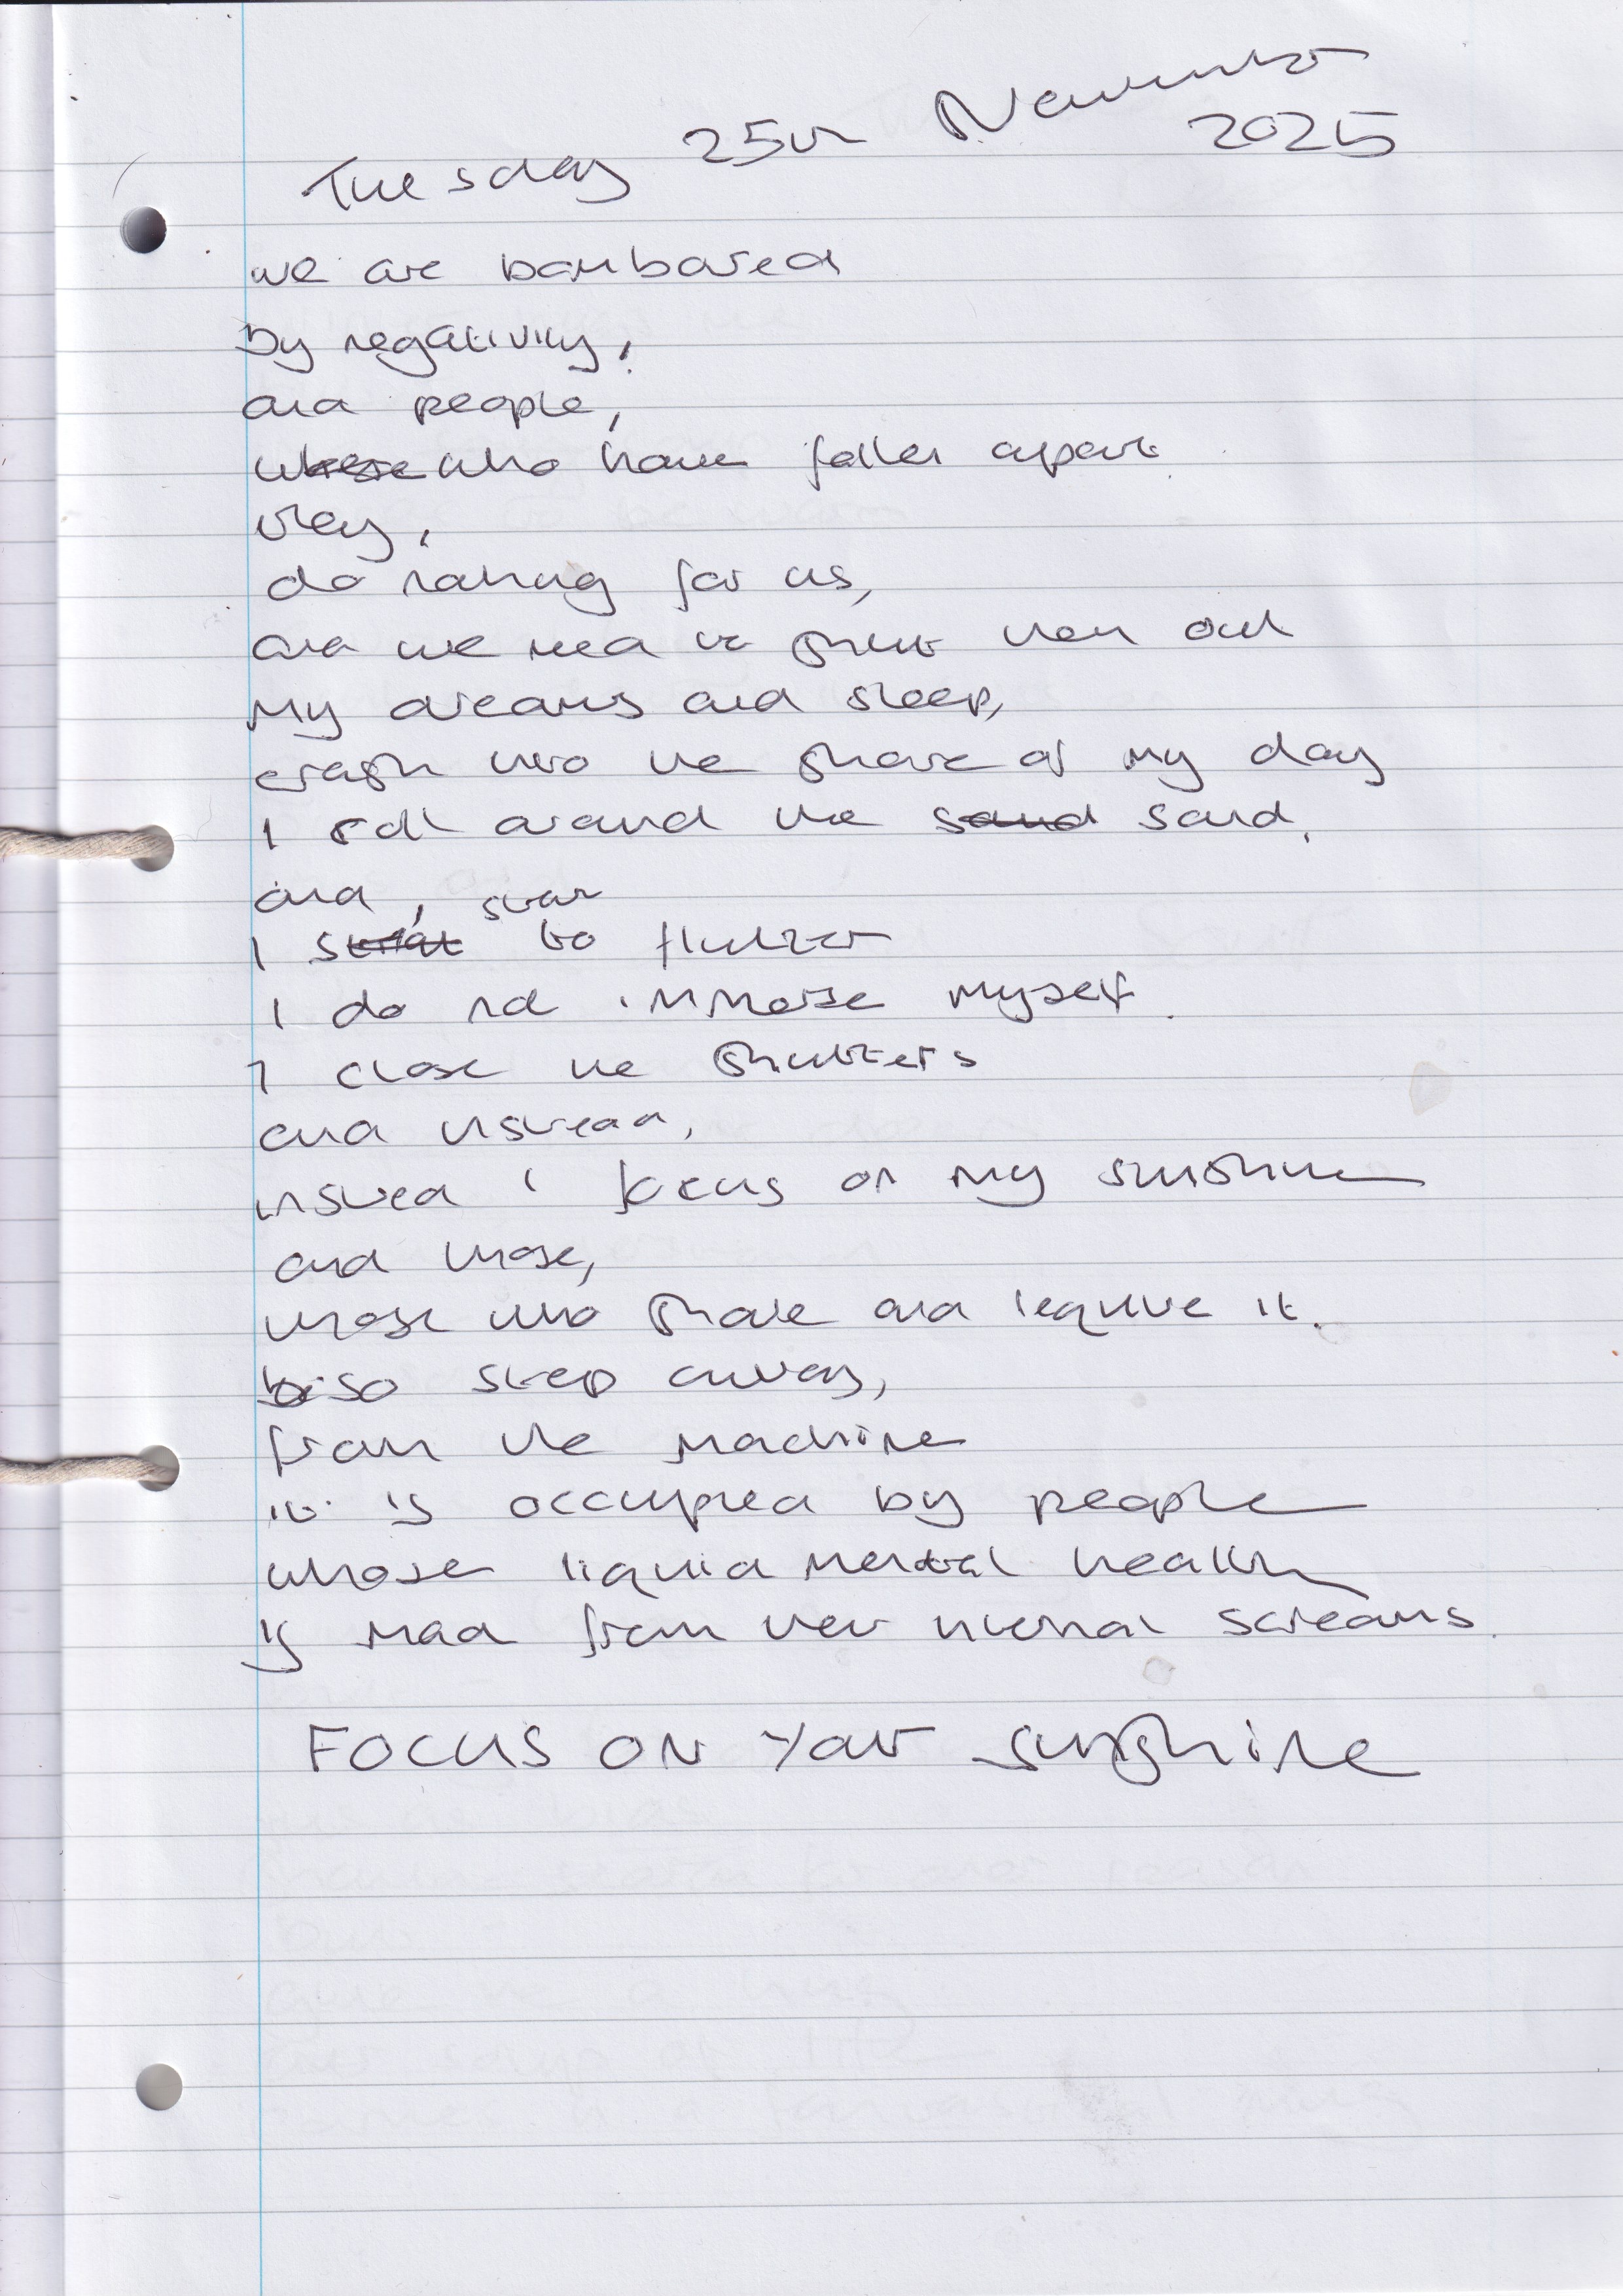 Tuesday 25th November 2025
we are bombared
by negativity,
and people,
who have fallen apart.
they,
do nothing for us,
and we need to shut them out
My dreams and sleep,
crash into the shore of my day
I roll around the sand sand,
and,
I start to flutter
I do not immerse myself.
I close the shutters
and instead,
instead i focus on my sunshine
and those,
those who share and require it.
so step away,
from the machine
it is occupied by people
whose liquid mental health
is mad from their internal screams.
FOCUS ON YOUR sunshine